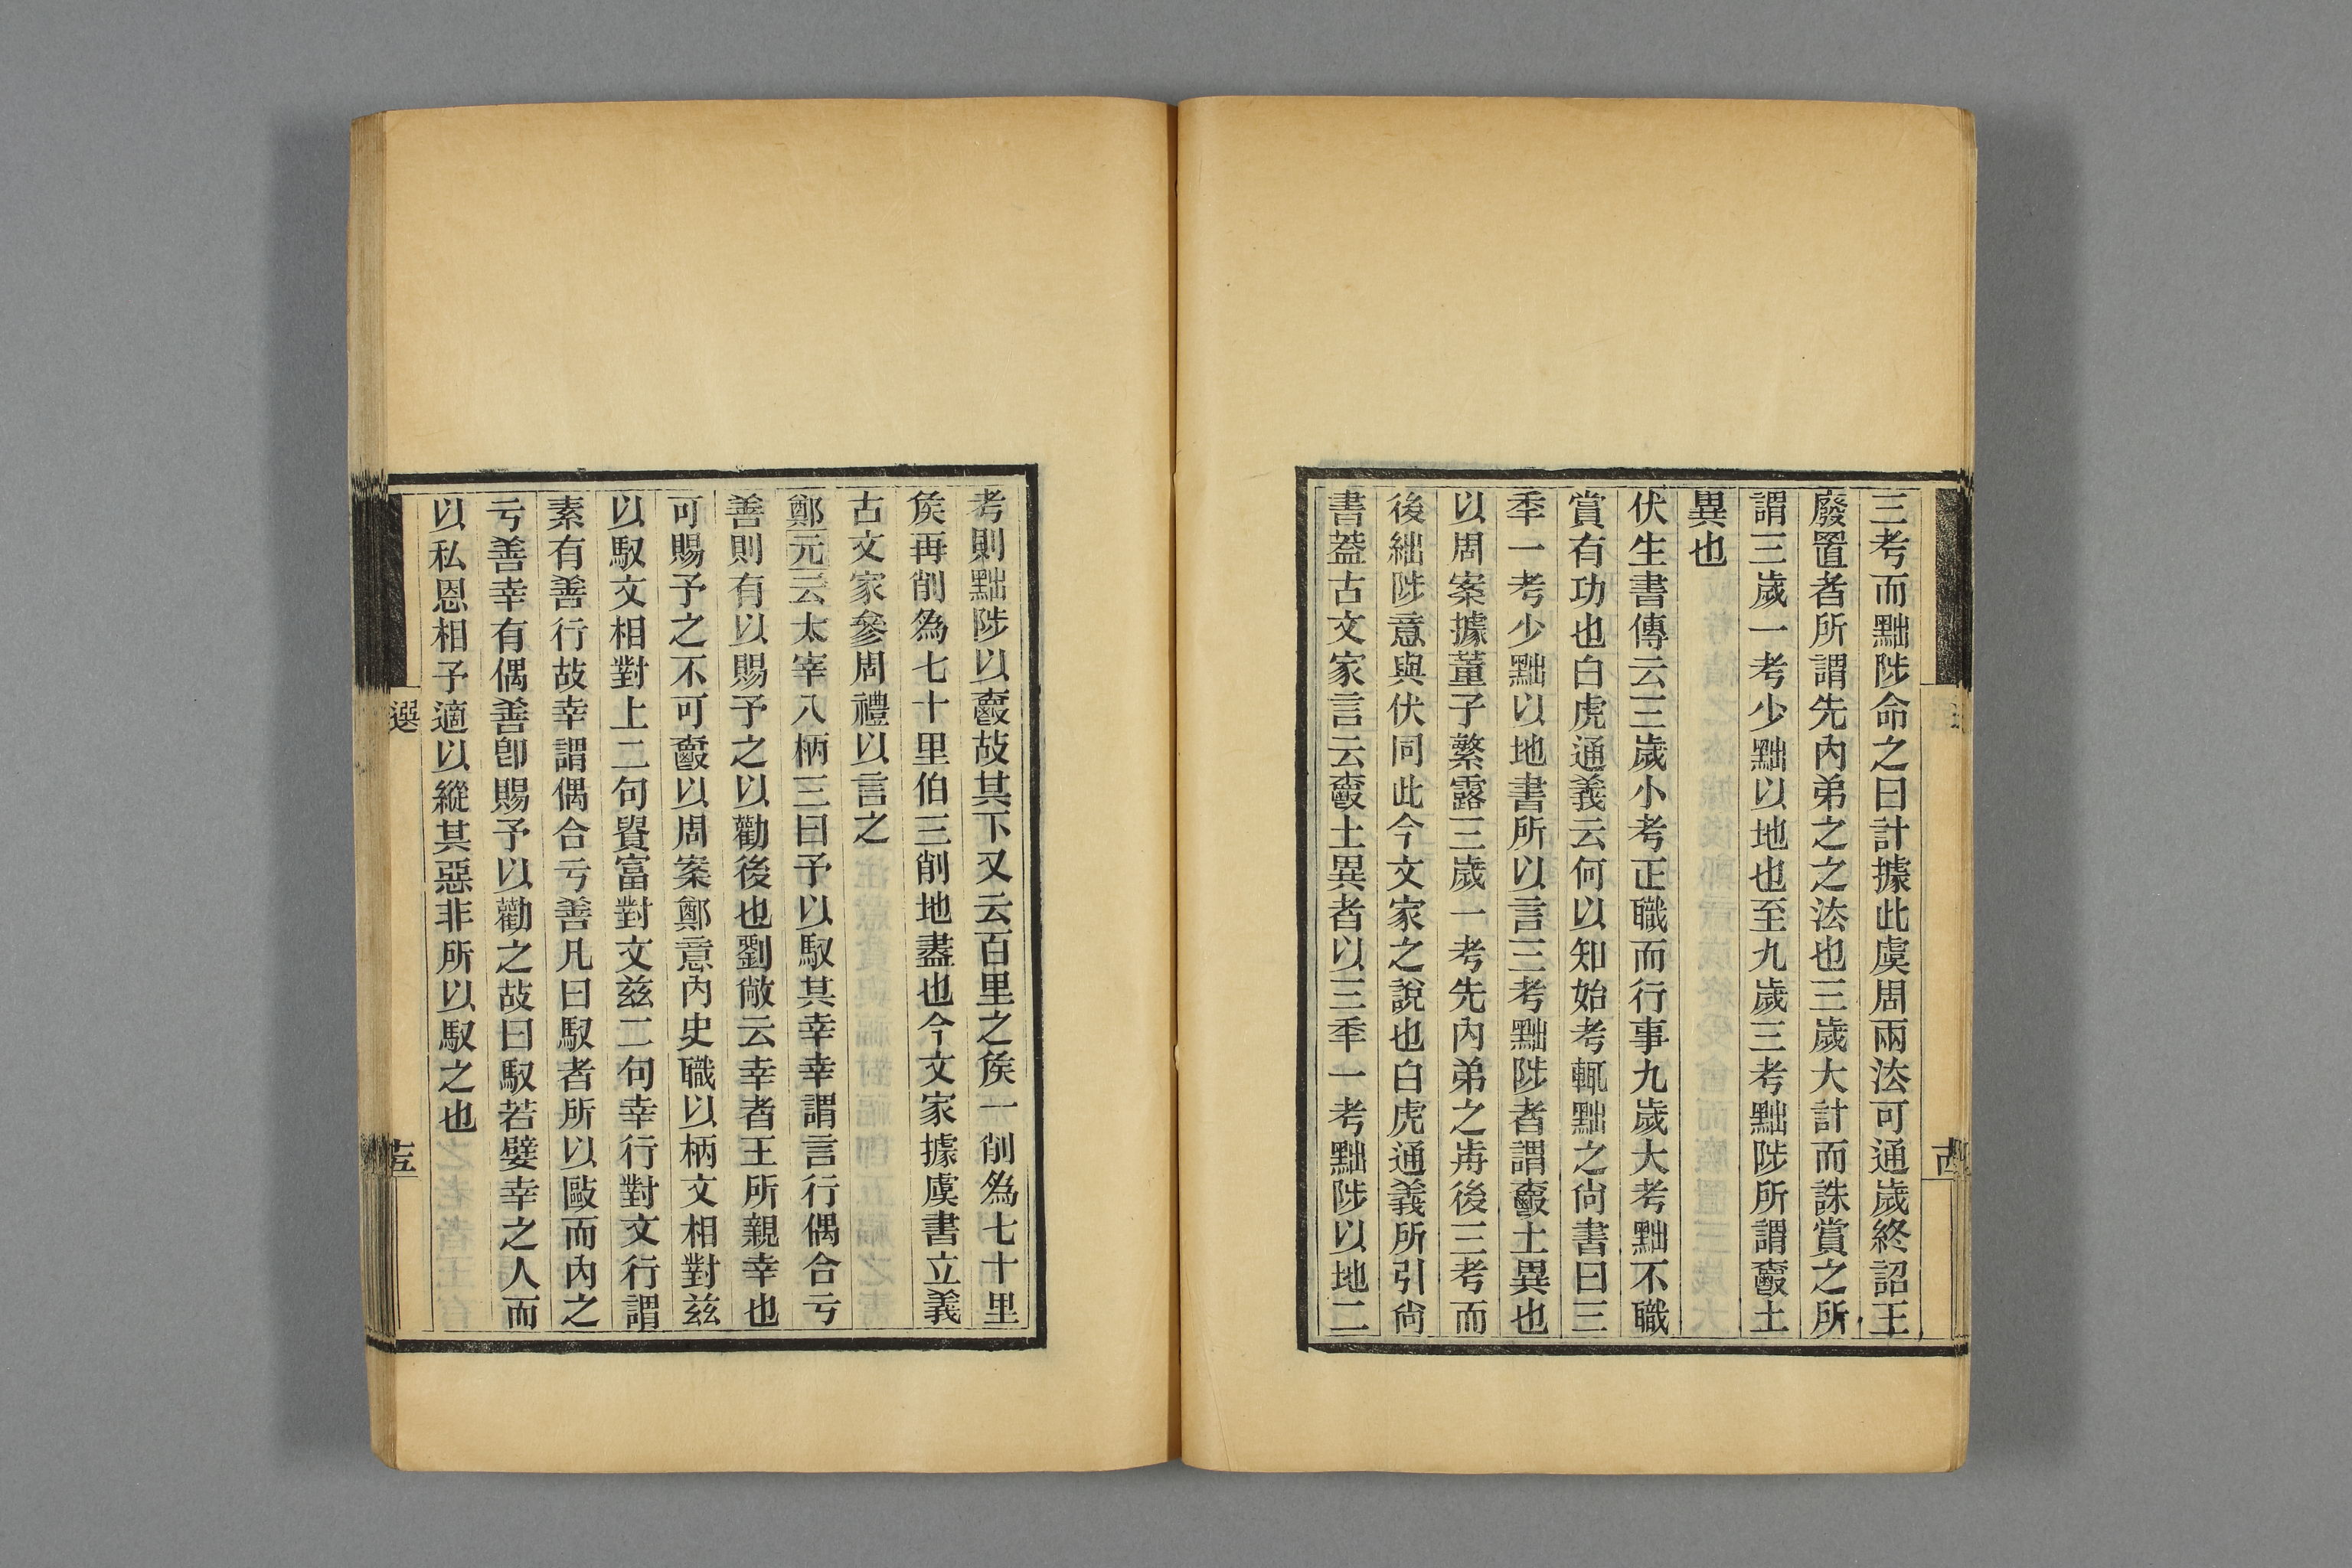 三考而黜陟命之曰計據此虞周兩法可通歲終詔王
廢置者所謂先內弟之之法也三歲大計而誅賞之所
謂三歲一考少黜以地也至九歲三考黜陟所謂爵土
異也
伏生書傳云三歲小考正職而行事九歲大考黜不職
賞有功也白虎通義云何以知始考輒黜之尙書曰三
秊一考少黜以地書所以言三考黜陟者謂爵土異也
以周案據董子繁露三歲一考先內弟之歬後三考而
後絀陟意與伏同此今文家之說也白虎通義所引尙
書葢古文家言云爵土異者以三秊一考黜陟以地二
考則黜陟以爵故其下又云百里之矦一削爲七十里
矦再削爲七十里伯三削地盡也今文家據虞書立義
古文家參周禮以言之
鄭元云太宰八柄三曰予以馭其幸幸謂言行偶合亏
善則有以賜予之以勸後也劉敞云幸者王所親幸也
可賜予之不可爵以周案鄭意內史職以柄文相對兹
以馭文相對上二句貴富對文兹二句幸行對文行謂
素有善行故幸謂偶合亏善凡曰馭者所以敺而內之
亏善幸有偶善卽賜予以勸之故曰馭若嬖幸之人而
以私恩相予適以縱其惡非所以馭之也
選
十五